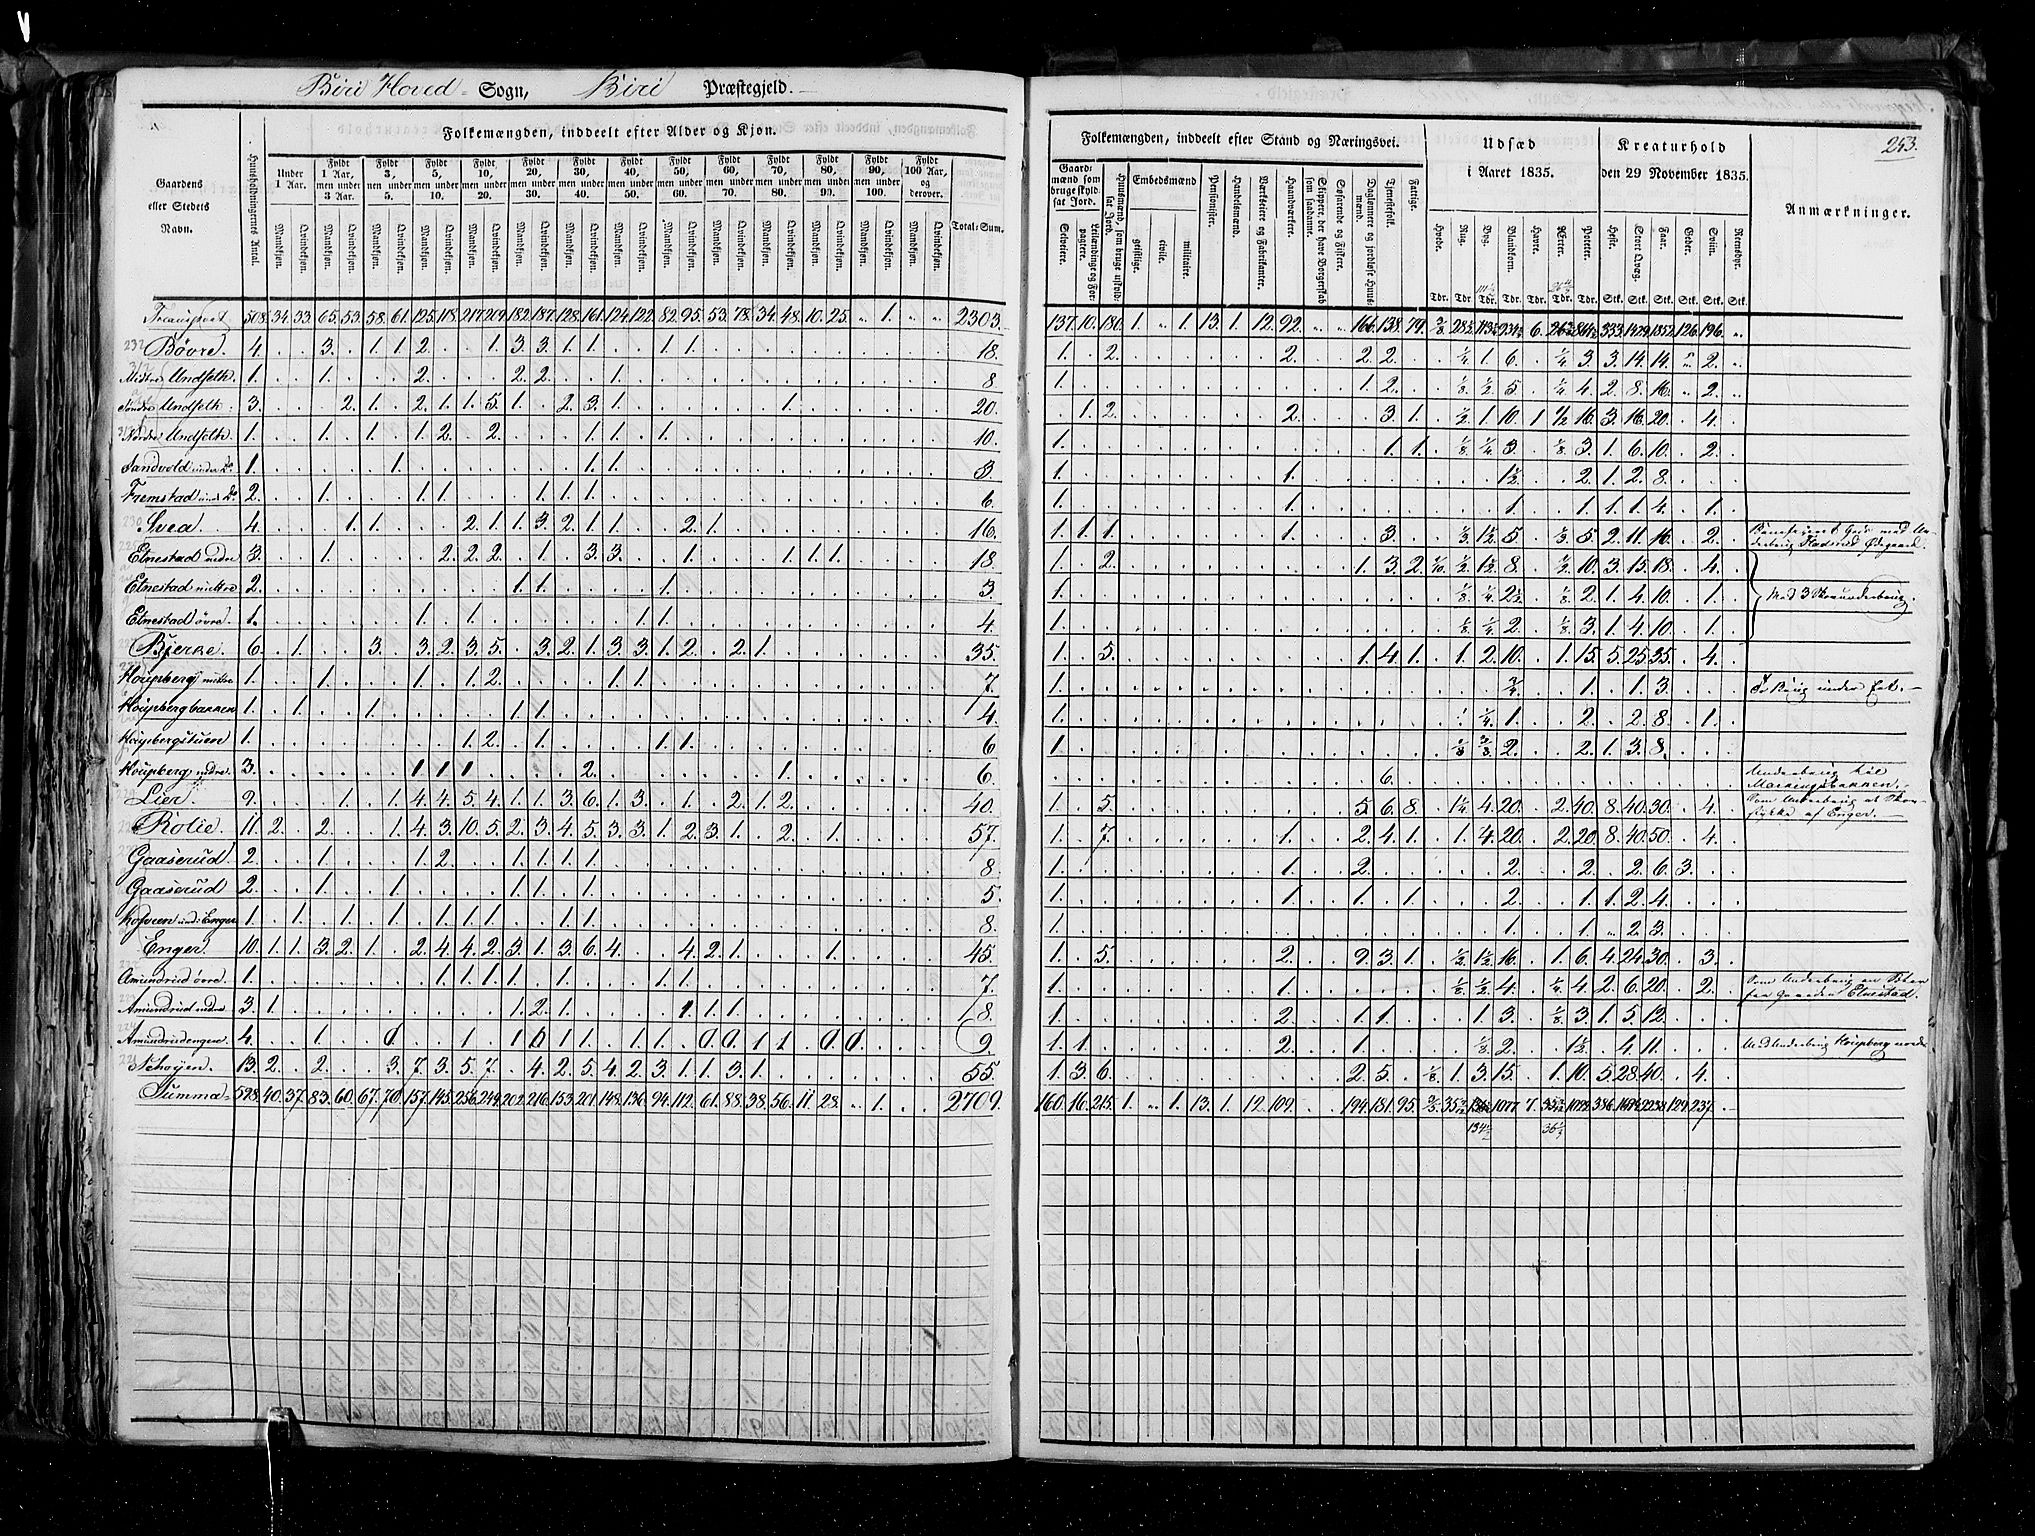 Biri Hoved Sogn, Biri Præstegjeld.
253.
Folkemængden, inddeelt efter Alder og Kjøn.
Folkemængden, inddeelt efter Stand og Næringsvei.
Udsæd i Aaret 1835.
Kreaturhold den 29 November 1835.
Anmærkninger.
Gaardens eller Stedets Navn.
Huusholdningernes Antal.
Under 1 Aar.
Fyldt 1 Aar, men under 3 Aar.
Fyldt 3, men under 5.
Fyldt 5, men under 10.
Fyldt 10, men under 20.
Fyldt 20, men under 30.
Fyldt 30, men under 40.
Fyldt 40, men under 50.
Fyldt 50, men under 60.
Fyldt 60, men under 70.
Fyldt 70, men under 80.
Fyldt 80, men under 90.
Fyldt 90, men under 100.
Fyldt 100 Aar, og derover.
Mandkjøn. Qvindekjøn.
Total-Sum.
Gaardmænd som bruge skyldsat Jord.
Selveiere.
Leilændinge og Forpagtere.
Huusmænd, som bruge uskyldsat Jord.
Embedsmænd
geistlige. civile. militaire.
Pensionister.
Handelsmænd.
Værkseiere og Fabrikanter.
Haandværkere.
Skippere, der have Borgerskab som saadanne.
Søfarende og Fiskere.
Daglønnere og jordløse Huusmænd.
Tjenestefolk.
Fattige.
Hvede. Rug. Byg. Blandkorn. Havre. Ærter. Poteter.
Heste. Stort Qvæg. Faar. Geder. Sviin. Reensdyr.
Tdr. Tdr. Tdr. Tdr. Tdr. Tdr. Tdr. Stk. Stk. Stk. Stk. Stk. Stk.
Transport 508. 34. 33. 65. 53. 58. 61. 125. 118. 217. 209. 182. 187. 128. 161. 124. 122. 82. 95. 53. 78. 34. 48. 10. 25. " 1. 2303.
137. 10. 180. 1. " 1. 13. 1. 12. 92. " " 166. 138. 79.
Bøvre. 4. 3. 1. 1. 2. 1. 3. 3. 1. 1. 1. 1. 18.
1. 2. 2. 2. 2. 1/4 1 6. 1/4 3. 3. 14. 14. " 2. "
Undseth. 1. 1. 2. 2. 2. 1. 8.
1. 1. 2. 1/8 1/2 5. 1/4 4. 2. 8. 16. " 2. "
Søndre Undseth. 3. 2. 1. 2. 1. 1. 5. 1. 2. 3. 1. 1. 20.
1. 2. 2. 3. 1. 1/2 1. 10. 1 1/2 16. 3. 16. 20. 4.
Nordre Undseth. 1. 1. 1. 1. 2. 2. 1. 1. 1. 10.
1. 1. 1. 1/8 1/4 3. 1/8 3. 1. 6. 10. 2.
Sandvold under Do 1. 1. 1. 1. 3.
1. 1. 1 1/2 2. 1. 2. 8.
Fremstad und Do 2. 1. 1. 1. 1. 1. 1. 6.
1. 1. 1. 1. 1. 1. 4. 1.
Svea. 4. 1. 1. 2. 1. 1. 3. 2. 1. 1. 2. 1. 16.
1. 1. 1. 1. 3. 5. 5. 2. 11. 16. 2.
Etnestad nedre 3. 1. 2. 2. 2. 1. 3. 3. 1. 1. 1. 1. 18.
1. 2. 1. 3. 2. 1/2 1 1/2 8. 1/2 10. 3. 15. 18. 4.
Etnestad mittre 2. 1. 1. 1. 3.
1. 1/8 1/4 2 1/2 1/8 2. 1. 4. 10. 1.
Etnestad øvre. 1. 1. 1. 1. 1. 4.
1. 1/8 1/4 2. 1/8 3. 1. 4. 10. 1.
Bjerke. 6. 1. 3. 3. 2. 3. 5. 3. 2. 1. 3. 3. 1. 2. 2. 1. 35.
1. 5. 1. 4. 1. 1. 2. 10. 1. 15. 5. 25. 35. 4.
Houpberg mittre 1. 1. 1. 1. 2. 1. 1. 7.
1. 3/4 1. 1. 3.
Houpbergbakken 1. 1. 1. 1. 1. 4.
1. 1/4 1. 2. 2. 8. 1.
Houpbergstuen 1. 1. 2. 1. 1. 1. 6
1. 1/8 3/8 2. 2. 1. 3. 8.
Houpberg nedre. 3. 1 1 1 2. 1. 6.
6.
Lier. 9. 1. 1. 4. 4. 5. 4. 1. 1. 3. 6. 1. 3. 1. 2. 1. 2. 40.
1. 5. 5. 6. 8. 1 1/4 4. 20. 2. 40. 8. 40. 30. 4.
Rolie. 11. 2. 2. 1. 4. 3. 10. 5. 2. 3. 4. 5. 3. 3. 1. 2. 3. 1. 2. 1. 57.
1. 7. 1. 2. 4. 1. 1. 4. 20. 2. 20. 8. 40. 50. 4.
Gaaserud. 2. 1. 1. 2. 1. 1. 1. 1. 8.
1. 1. 2. 2. 2. 2. 6. 3.
Gaaserud 2. 1. 1. 1. 1. 1. 5.
1. 1. 1. 1. 2. 1. 1. 2. 4.
und: Enger 1. 1. 1. 1. 1. 1. 1. 1. 8.
1. 1. 1. " 2. 3.
Enger. 10. 1. 1. 3. 2. 1. 2. 4. 4. 2. 3. 1. 3. 6. 4. 4. 2. 1. 1. 45.
1. 5. 2. 9. 3. 1. 1/2 1 1/2 16. 1. 6. 4. 24. 30. 3.
Amundrud øvre. 1. 1. 1. 1. 1. 1. 1. 1. 7.
1. 1. 1/8 1/2 4. 1/4 4. 2. 6. 20. 2.
Amundrud nedre 3. 1. 1. 2. 1. 1 1. 1. 8.
1. 2. 1. 1. 1. 3. 1/8 3. 1. 5. 12.
Amundrudengene. 4. 9.
1. 1. 2. 1. 1/8 2. 1 1/2 4. 11.
Schøyen. 13. 2. 2. 3. 7. 3. 5. 7. 4. 2. 5. 4. 2. 3. 1. 1. 3. 1. 55.
1. 3. 6. 2. 5. 1/8 1. 3. 15. 1. 10. 5. 28. 40. 4.
Summa 598. 40. 37. 83. 60. 67. 70. 157. 145. 256. 249. 202. 216. 153. 201. 148. 136. 94. 112. 61. 88. 38. 56. 11. 28. " 1. 2709.
160. 16. 215. 1. " 1. 13. 1. 12. 109. 194. 181. 95.
134 1/2 36 1/2
Med 3 Skovunderbrug.
Underbrug
Som Underbrug
af Enger.
Som Underbrug
fra Gaarden Etnestad.
Med Underbrug Houpberg nordre